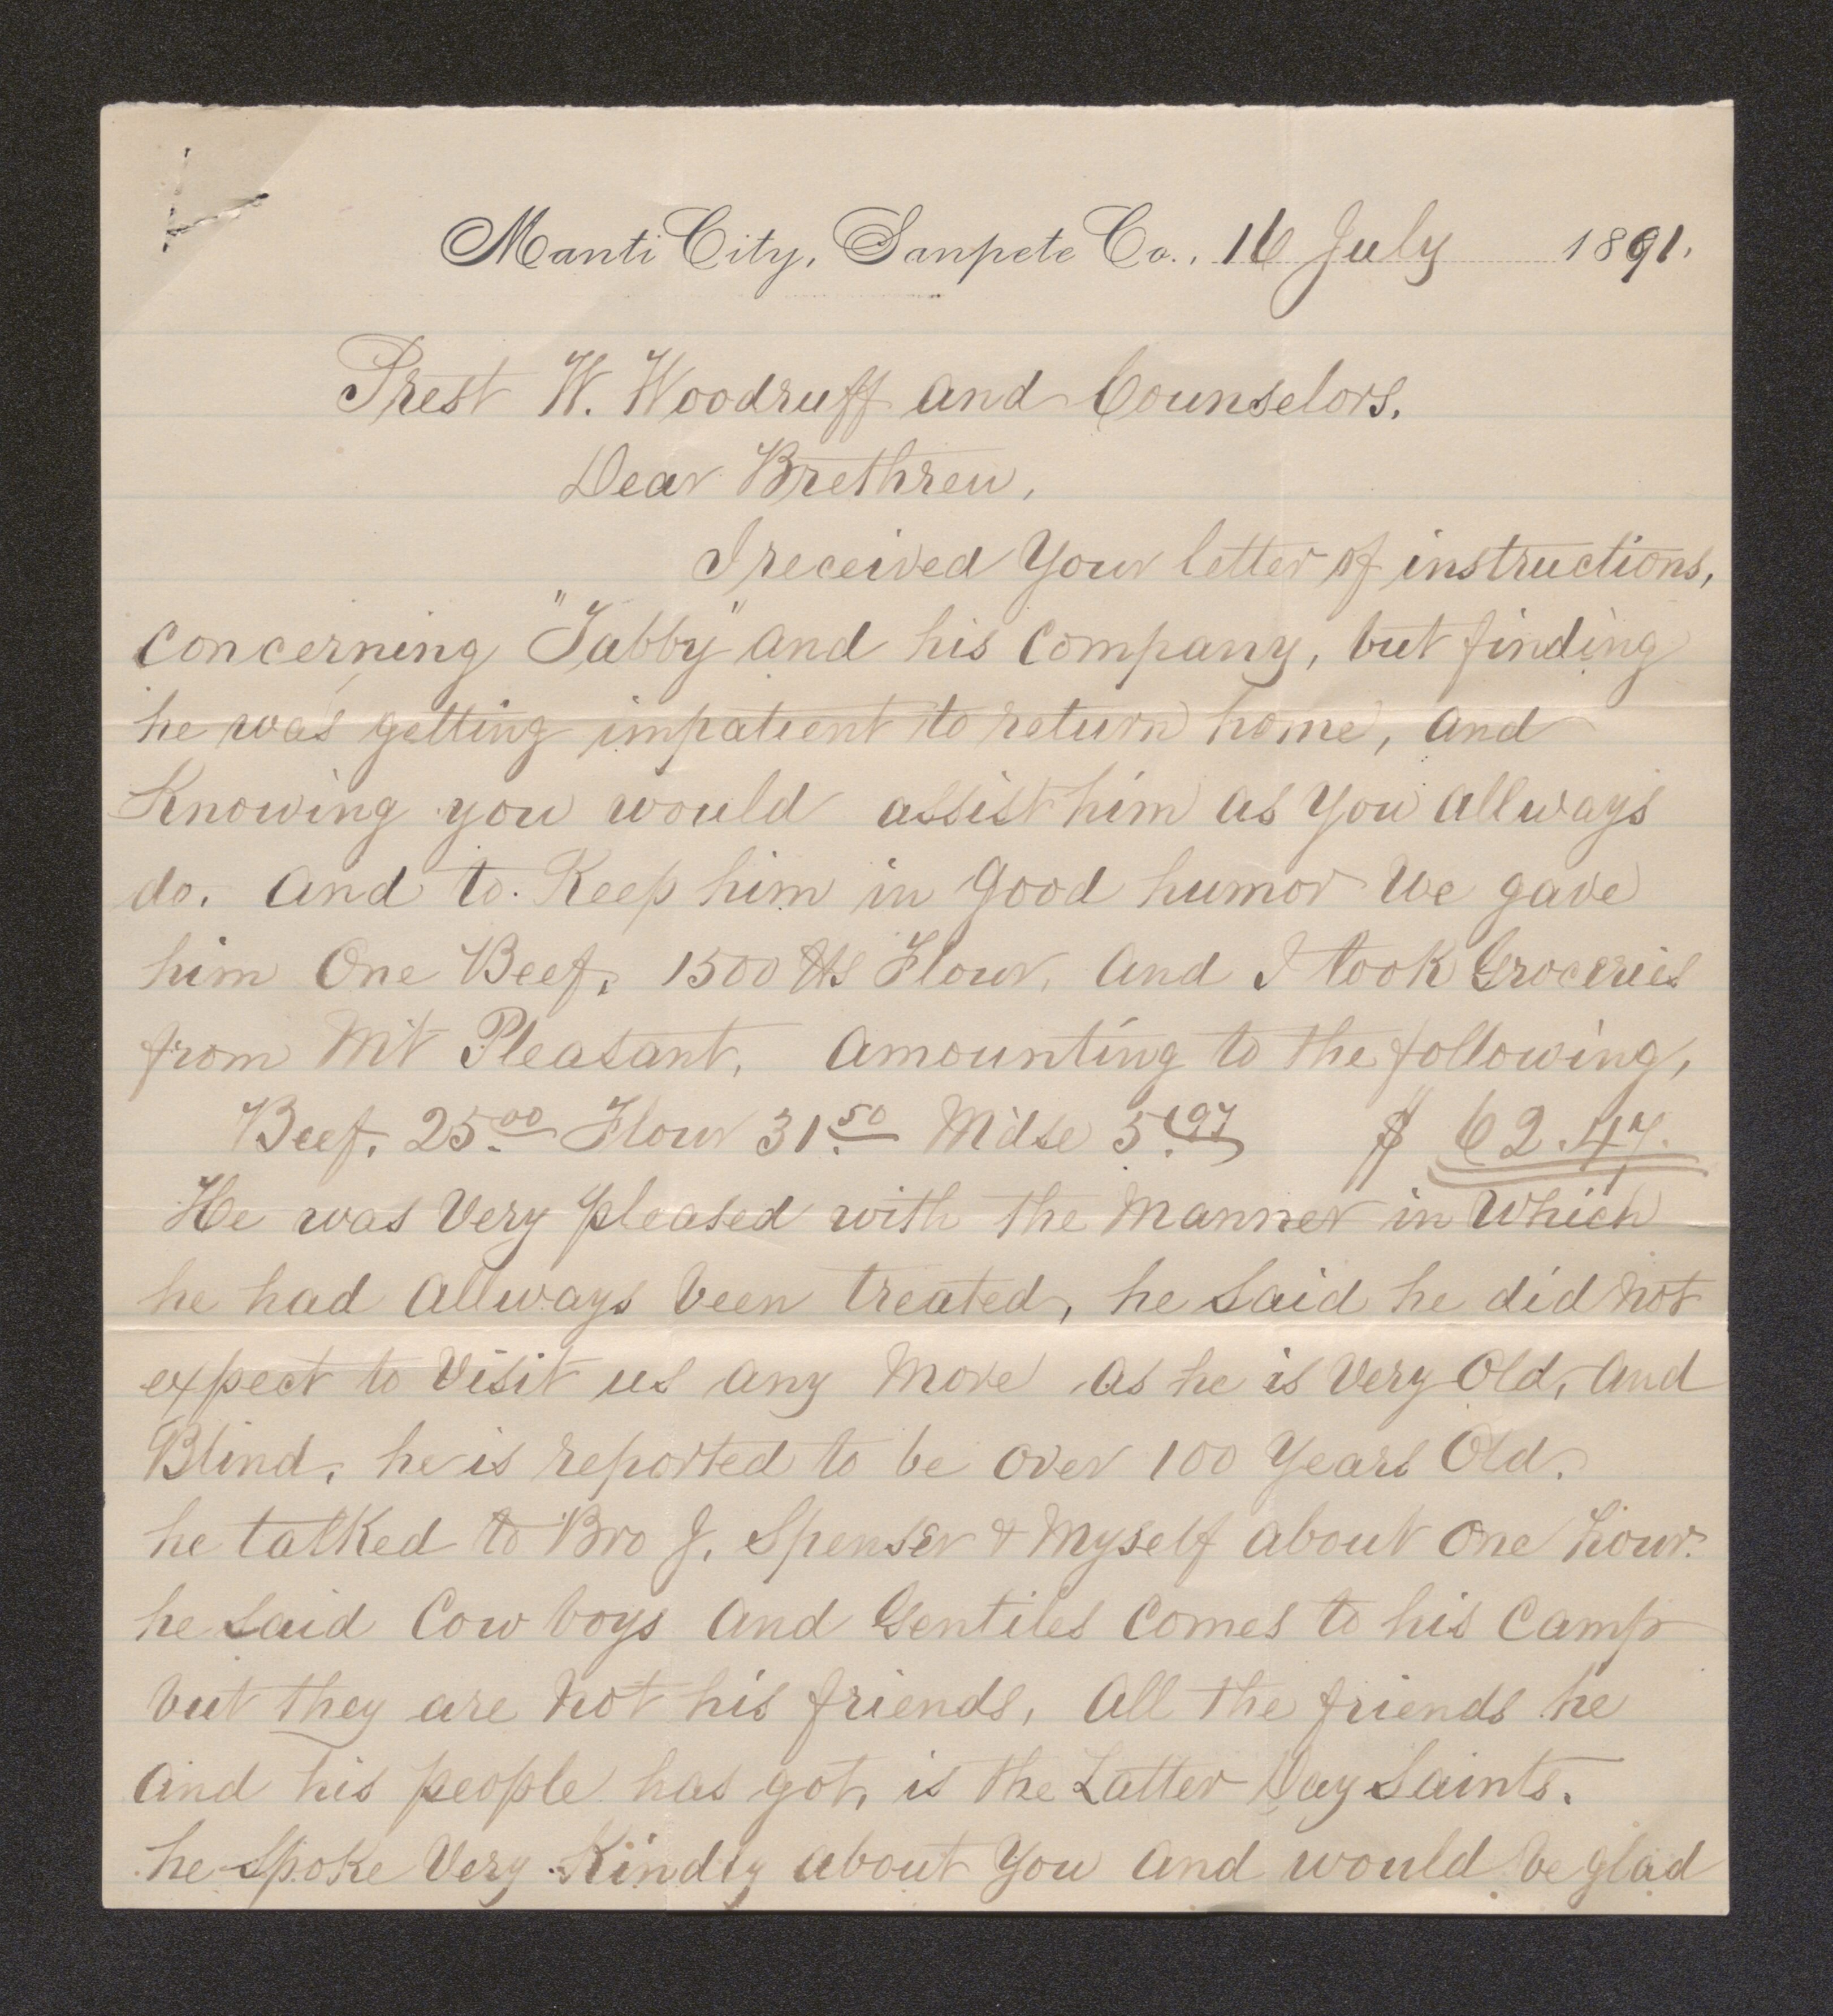 Manti City, Sanpete Co., 16 July 1891.
Prest W. Woodruff and Counselors.
Dear Brethren,
I received Your letter of instructions,
Concerning "Tabby" and his Company, but finding
he was getting impatient to return home, and
Knowing you would assist him as You allways
do. And to Keep him in Good humor We gave
him One Beef, 1500 lbs Flour, And I took Groceries
from Mt Pleasant, Amounting to the following,
Beef. 25.00 Flour 31.50 Mdse 5.97 $ 62.47.
He was Very pleased with the Manner in Which
he had Allways been treated, he Said he did Not
expect to Visit us any More as he is Very Old, And
Blind, he is reported to be over 100 Years Old.
he talked to Bro J. Spenser & Myself about One hour.
he Said Cow boys And Gentiles Comes to his Camp
but they are Not his friends, All the friends he
And his people has got, is the Latter Day Saints.
he Spoke Very Kindly about You And would be glad